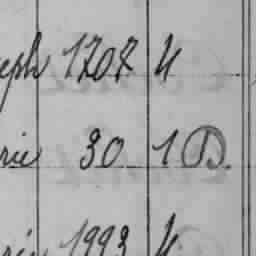 eph 1207 4
rie 30 1 D.
rin 1993 4